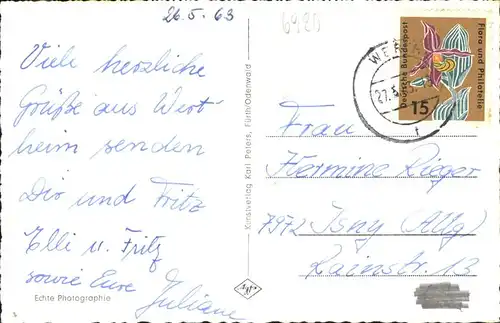 26.5.63
6980
Viele herzliche
Grüße aus Wert-
heim senden
Dir und Fritz
Elli u. Fritz
sowie Eure
Juliane
Echte Photographie
Kunstverlag Karl Peters, Fürth/Odenwald
Agfa
WER
27.5.
Deutsche Bundespost
Flora und Philatelie
15
Frau
Hermine Rieger
7972 Isny Allg
Rainstr. 13